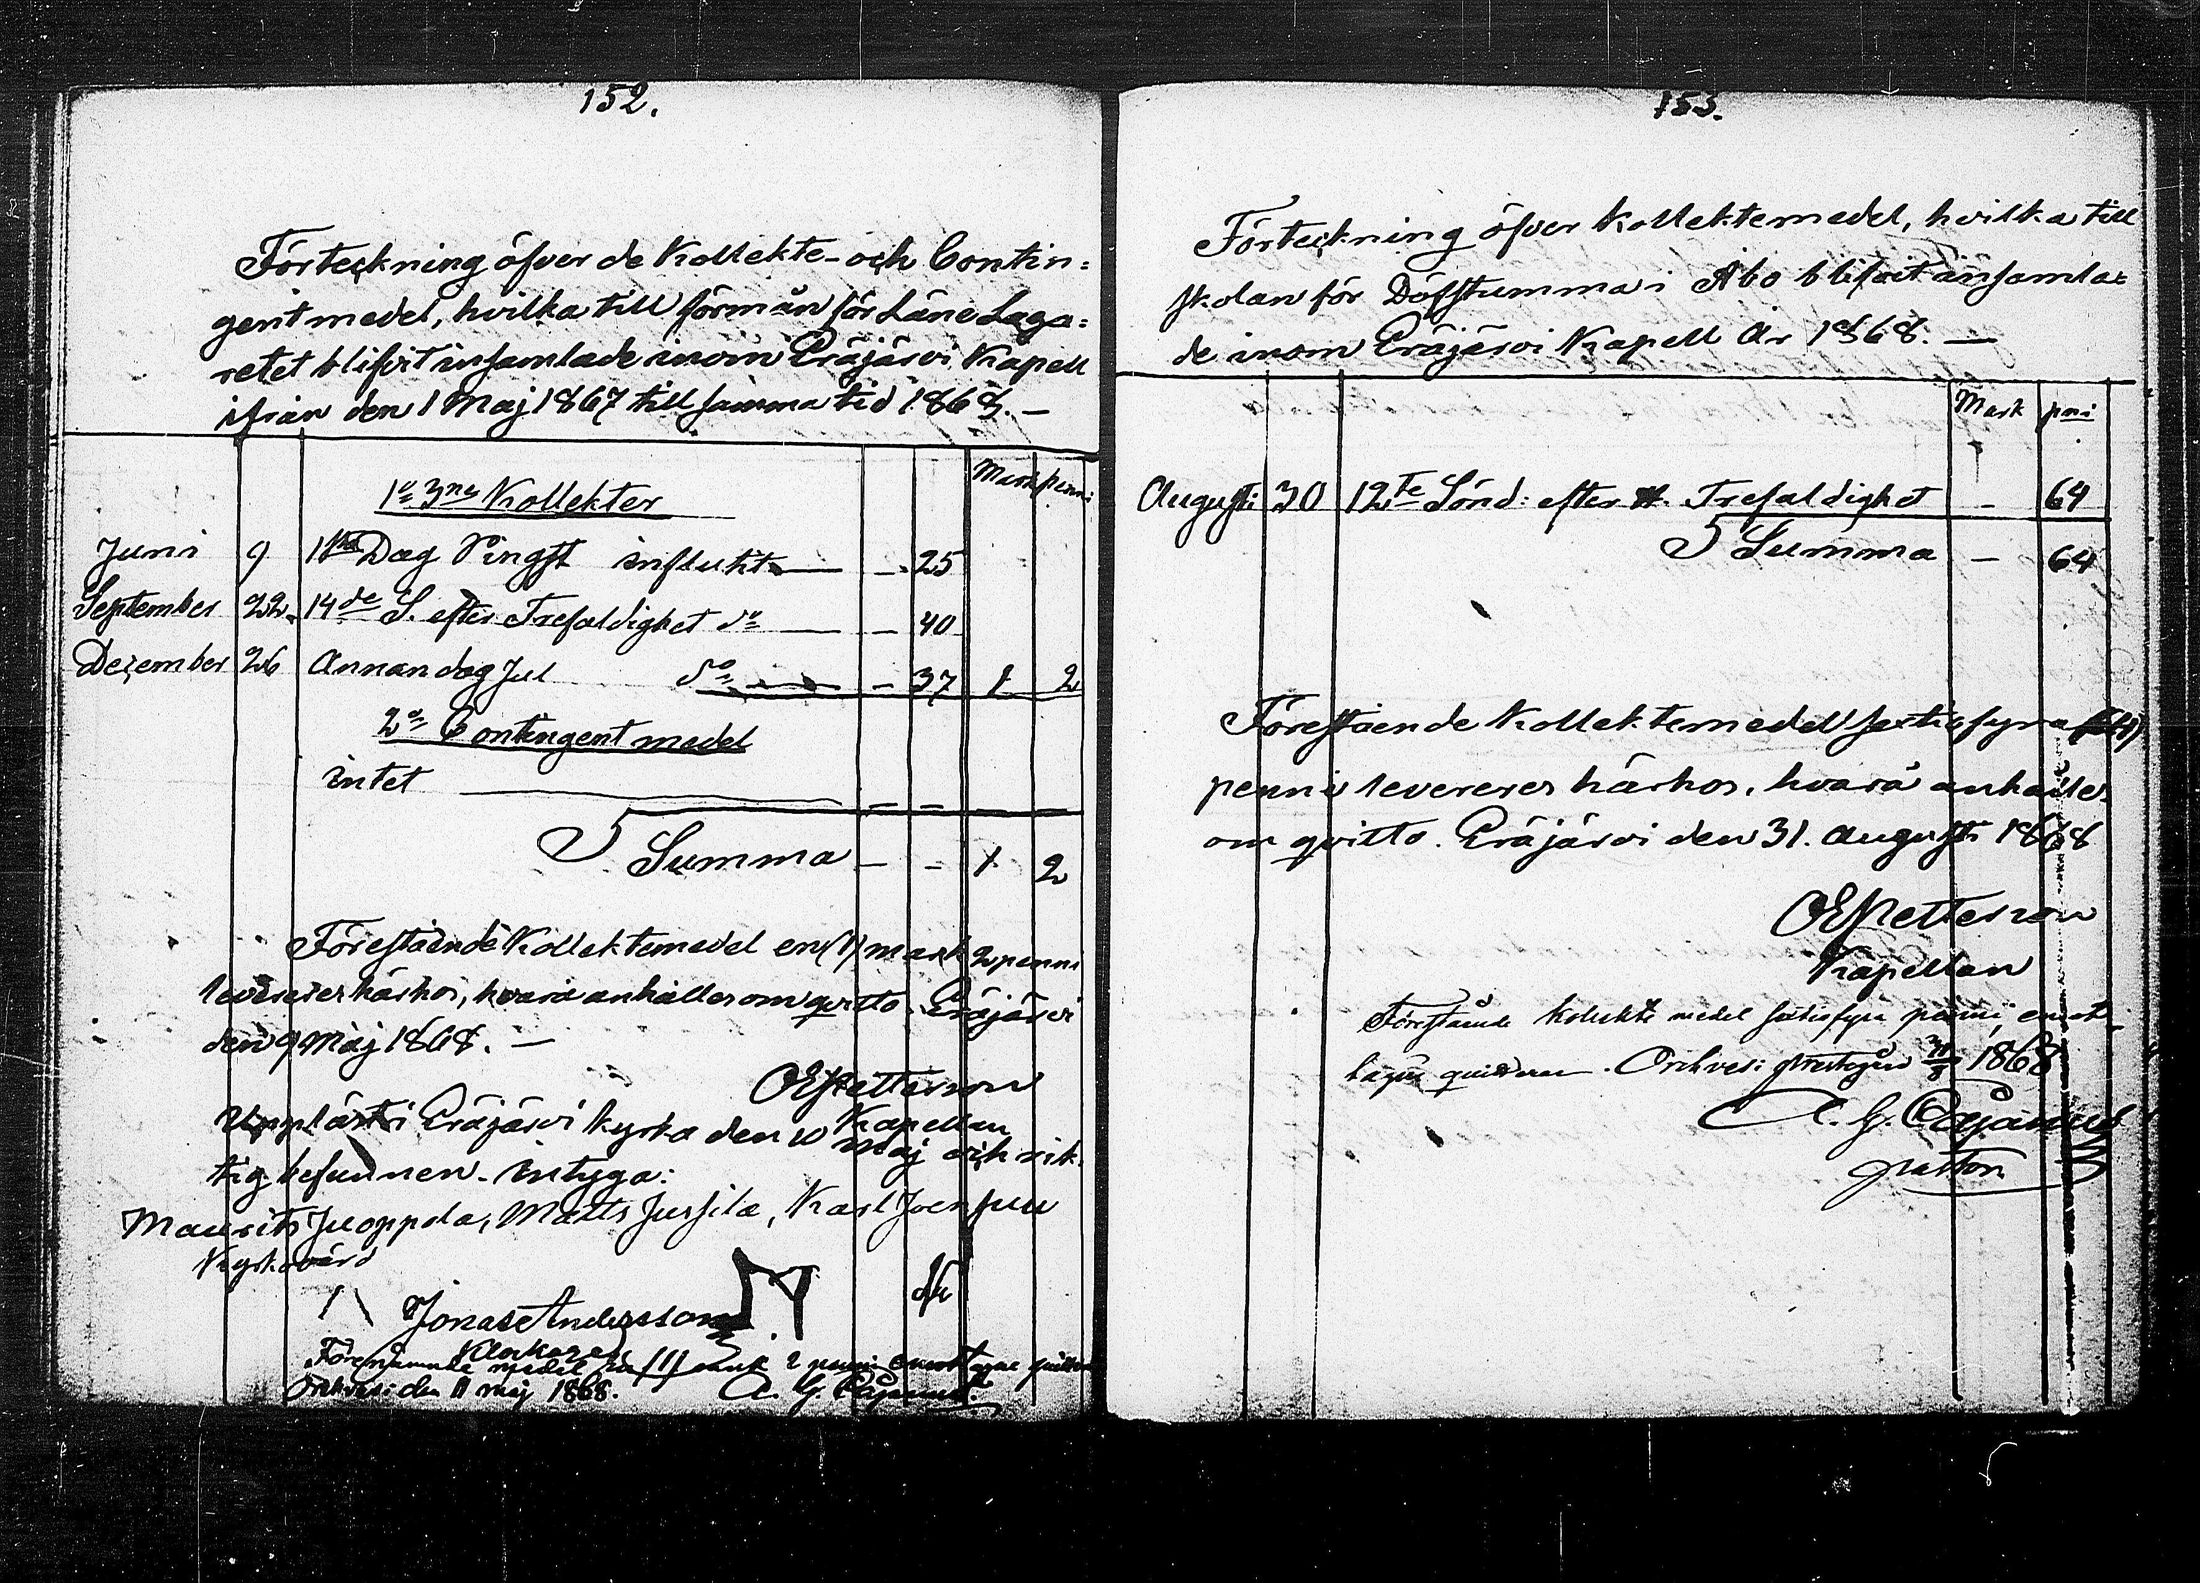 152.
Förteckning öfver de Kollekte- och Contin=
gentmedel, hvilka till förmån för Läne Laza=
retet blifvit insamlade inom Eräjärvi Kapell
ifrån den 1 Maj 1867 till samma tid 1868. —
Mark penni
1º 3ne Kollekter
Juni 9 1sta Dag Pingst influtit — 25
September 22. 14de S. efter Trefaldighet dº — 40
December 26 Annandag Jul dº — 37 1 2
2º Contingent medel
intet — —
Summa — - 1 2
Förestående Kollektemedel en (1) mark 2 penni
levererer härhos, hvarå anhåller om qvitto. Eräjärvi
den 9 Maj 1868. —
OEPettersson
Kapellan
Uppläst i Eräjärvi kyrka den 10 Maj och rik-
tig befunnen. Intyga:
Maurits Juoppola, Matts Jussila, Karl Joensuu
Kyrkovärd
Jonas Andersson
Klockare
Förenämnde medel en (1) mark 2 penni emottagne quitteras
Orihvesi den 11 maj 1868. A. G. Cajanus.
153.
Förteckning öfver Kollektemedel, hvilka till
skolan för Döfstumma i Åbo blifvit insamla=
de inom Eräjärvi Kapell År 1868. —
Mark pni
Augusti 30 12te Sönd: efter H. Trefaldighet - 64
Summa — 64
Förestående Kollektemedel sextiofyra (64)
penni levererer härhos, hvarå anhålles
om qvitto. Eräjärvi den 31. Augusti 1868
OEPettersson
Kapellan
Förestående kollekte medel sextiofyra penni, emot-
tagne quitteras. Orihvesi prestegård 31/8 1868
A. G. Cajanus
pastor